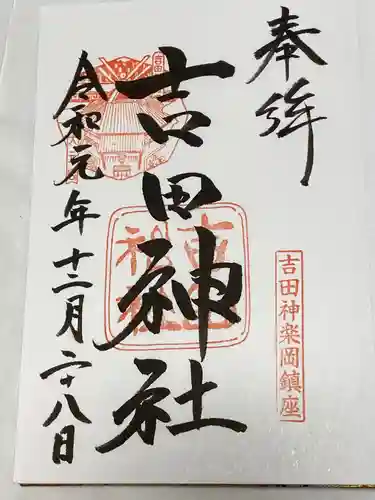 奉拝
吉田神楽岡鎮座
吉田神社
令和元年十二月二十八日
吉田
吉田
神社